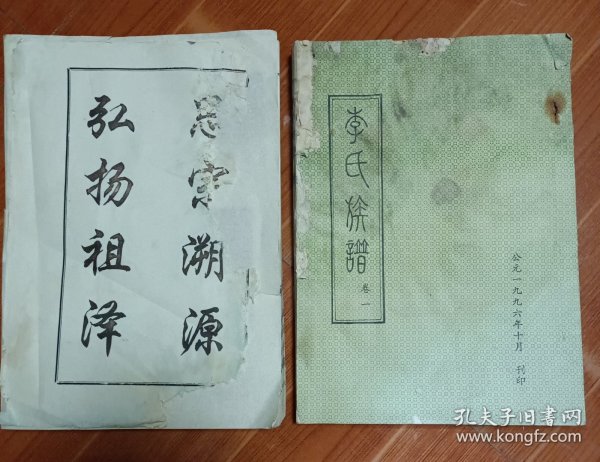 思宗溯源
弘扬祖泽
李氏族譜 卷一
公元一九九六年十月 刊印
孔夫子旧书网
www.kongfz.com